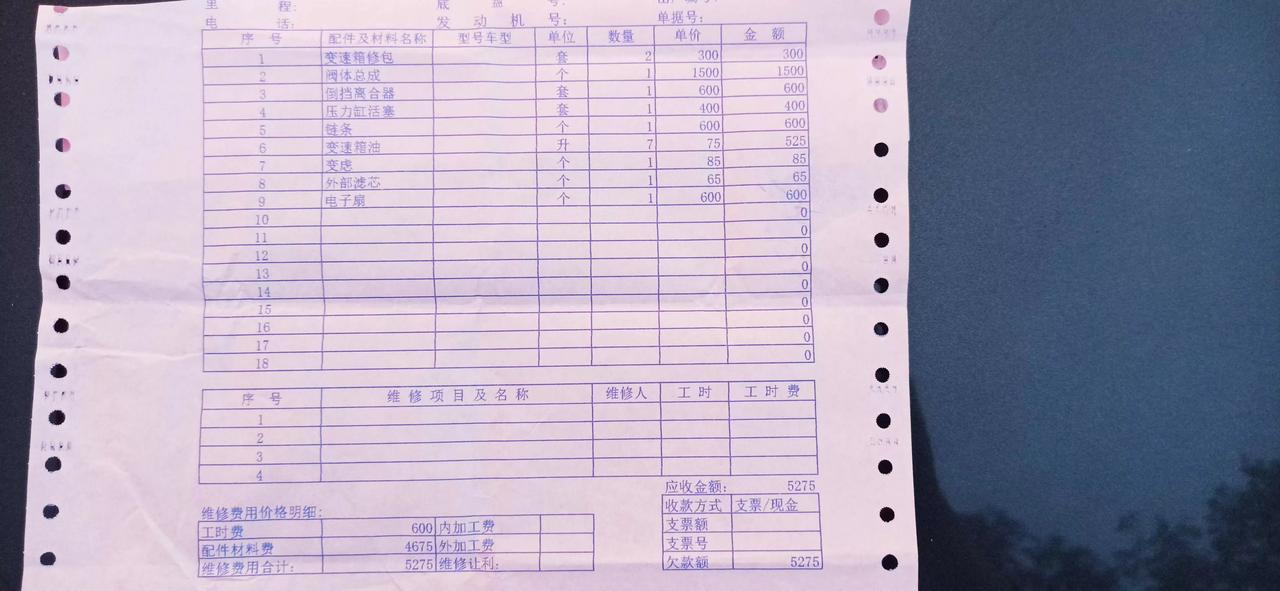 电 话: 发 动 机 号: 单据号:
序 号 配件及材料名称 型号车型 单位 数量 单价 金 额
1 变速箱修包 套 2 300 300
2 阀体总成 个 1 1500 1500
3 倒挡离合器 套 1 600 600
4 压力缸活塞 套 1 400 400
5 链条 个 1 600 600
6 变速箱油 升 7 75 525
7 变虑 个 1 85 85
8 外部滤芯 个 1 65 65
9 电子扇 个 1 600 600
10 0
11 0
12 0
13 0
14 0
15 0
16 0
17 0
18 0
序 号 维 修 项 目 及 名 称 维修人 工 时 工 时 费
1
2
3
4
应收金额: 5275
维修费用价格明细: 收款方式 支票/现金
工时费 600 内加工费 支票额
配件材料费 4675 外加工费 支票号
维修费用合计: 5275 维修让利: 欠款额 5275